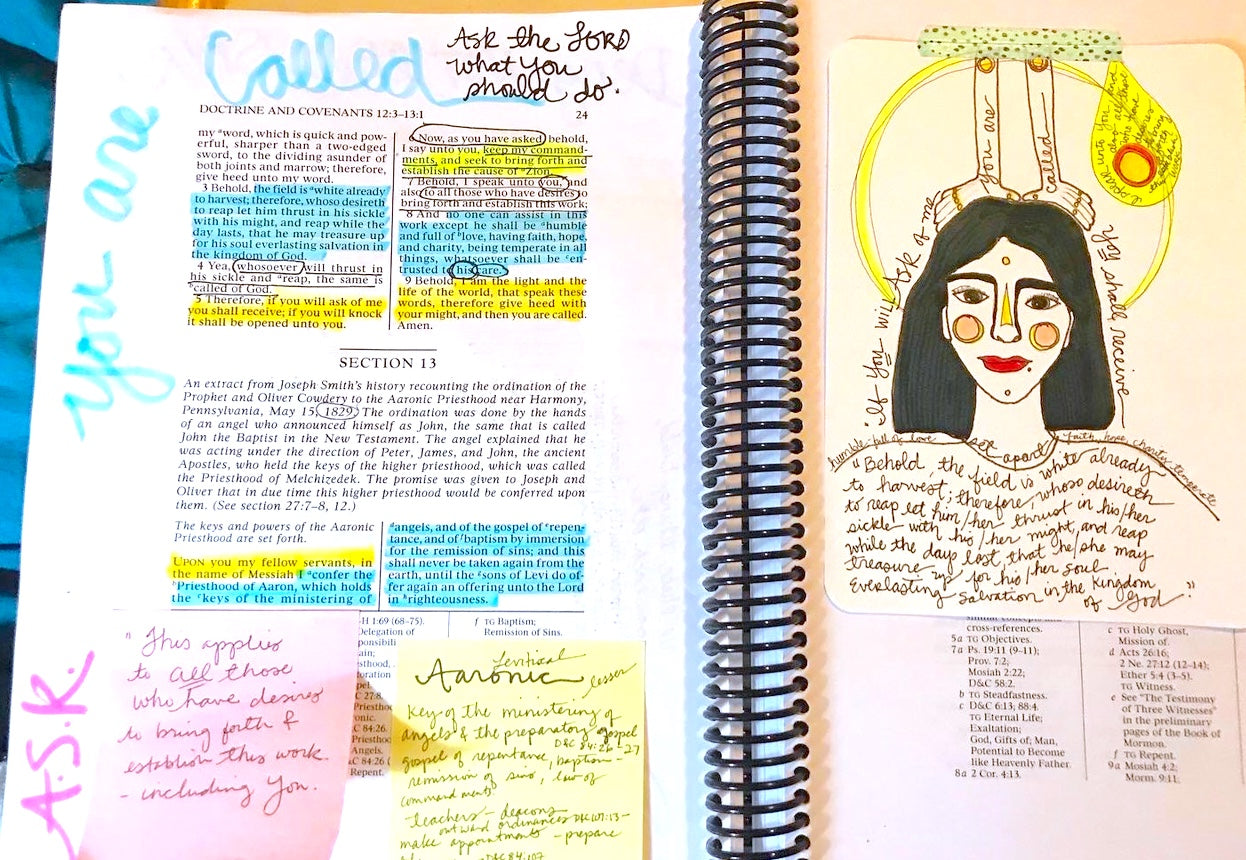 Called
Ask the LORD
what You
should do.
You are
A.S.K.
DOCTRINE AND COVENANTS 12:3–13:1 24
my ᵃword, which is quick and pow-
erful, sharper than a two-edged
sword, to the dividing asunder of
both joints and marrow; therefore,
give heed unto my word.
3 Behold, the field is ᵃwhite already
to harvest; therefore, whoso desireth
to reap let him thrust in his sickle
with his might, and reap while the
day lasts, that he may treasure up
for his soul everlasting salvation in
the kingdom of God.
4 Yea, whosoever will thrust in
his sickle and ᵃreap, the same is
ᵇcalled of God.
5 Therefore, if you will ask of me
you shall receive; if you will knock
it shall be opened unto you.
6 Now, as you have asked, behold,
I say unto you, keep my command-
ments, and seek to bring forth and
establish the cause of ᵃZion.
7 Behold, I speak unto you, and
also to all those who have desires to
bring forth and establish this work;
8 And no one can assist in this
work except he shall be ᵃhumble
and full of ᵇlove, having faith, hope,
and charity, being temperate in all
things, whatsoever shall be ᶜen-
trusted to his care.
9 Behold, I am the light and the
life of the world, that speak these
words, therefore give heed with
your might, and then you are called.
Amen.
SECTION 13
An extract from Joseph Smith's history recounting the ordination of the
Prophet and Oliver Cowdery to the Aaronic Priesthood near Harmony,
Pennsylvania, May 15, 1829. The ordination was done by the hands
of an angel who announced himself as John, the same that is called
John the Baptist in the New Testament. The angel explained that he
was acting under the direction of Peter, James, and John, the ancient
Apostles, who held the keys of the higher priesthood, which was called
the Priesthood of Melchizedek. The promise was given to Joseph and
Oliver that in due time this higher priesthood would be conferred upon
them. (See section 27:7–8, 12.)
The keys and powers of the Aaronic
Priesthood are set forth.
UPON you my fellow servants, in
the name of Messiah I ᵃconfer the
ᵇPriesthood of Aaron, which holds
the ᶜkeys of the ministering of
ᵈangels, and of the gospel of ᵉrepen-
tance, and of ᶠbaptism by immersion
for the remission of sins; and this
shall never be taken again from the
earth, until the ᵍsons of Levi do of-
fer again an offering unto the Lord
in ʰrighteousness.
"This applies
to all those
who have desires
to bring forth &
establish this work
- including You.
-H 1:69 (68–75).
Delegation of
f TG Baptism;
Remission of Sins.
C 27:8.
C 84:26
Angels.
Repent.
Levitical
Aaronic lesser
Key of the ministering of
angels & the preparatory gospel
D&C 84:26-27
gospel of repentance, baptism -
remission of sins, law of
commandments
teachers - deacons
outward ordinances D&C 107:13-
make appointments - prepare
D&C 84:107
you are
called
"If You will Ask of me
You shall receive
humble - full of love
set apart
faith, hope, charity, temperate
"Behold, the field is white already
to harvest; therefore, whose desireth
to reap let him/her thrust in his/her
sickle with his/her might, and reap
while the days last, that he/she may
treasure up for his/her soul
Everlasting Salvation in the Kingdom
of God"
cross-references.
5a TG Objectives.
7a Ps. 19:11 (9–11);
Prov. 7:2;
Mosiah 2:22;
D&C 58:2.
b TG Steadfastness.
c D&C 6:13; 88:4.
TG Eternal Life;
Exaltation;
God, Gifts of; Man,
Potential to Become
like Heavenly Father.
8a 2 Cor. 4:13.
c TG Holy Ghost,
Mission of.
d Acts 26:16;
2 Ne. 27:12 (12–14);
Ether 5:4 (3–5).
TG Witness.
e See "The Testimony
of Three Witnesses"
in the preliminary
pages of the Book of
Mormon.
f TG Repent.
9a Mosiah 4:2;
Morm. 9:11.